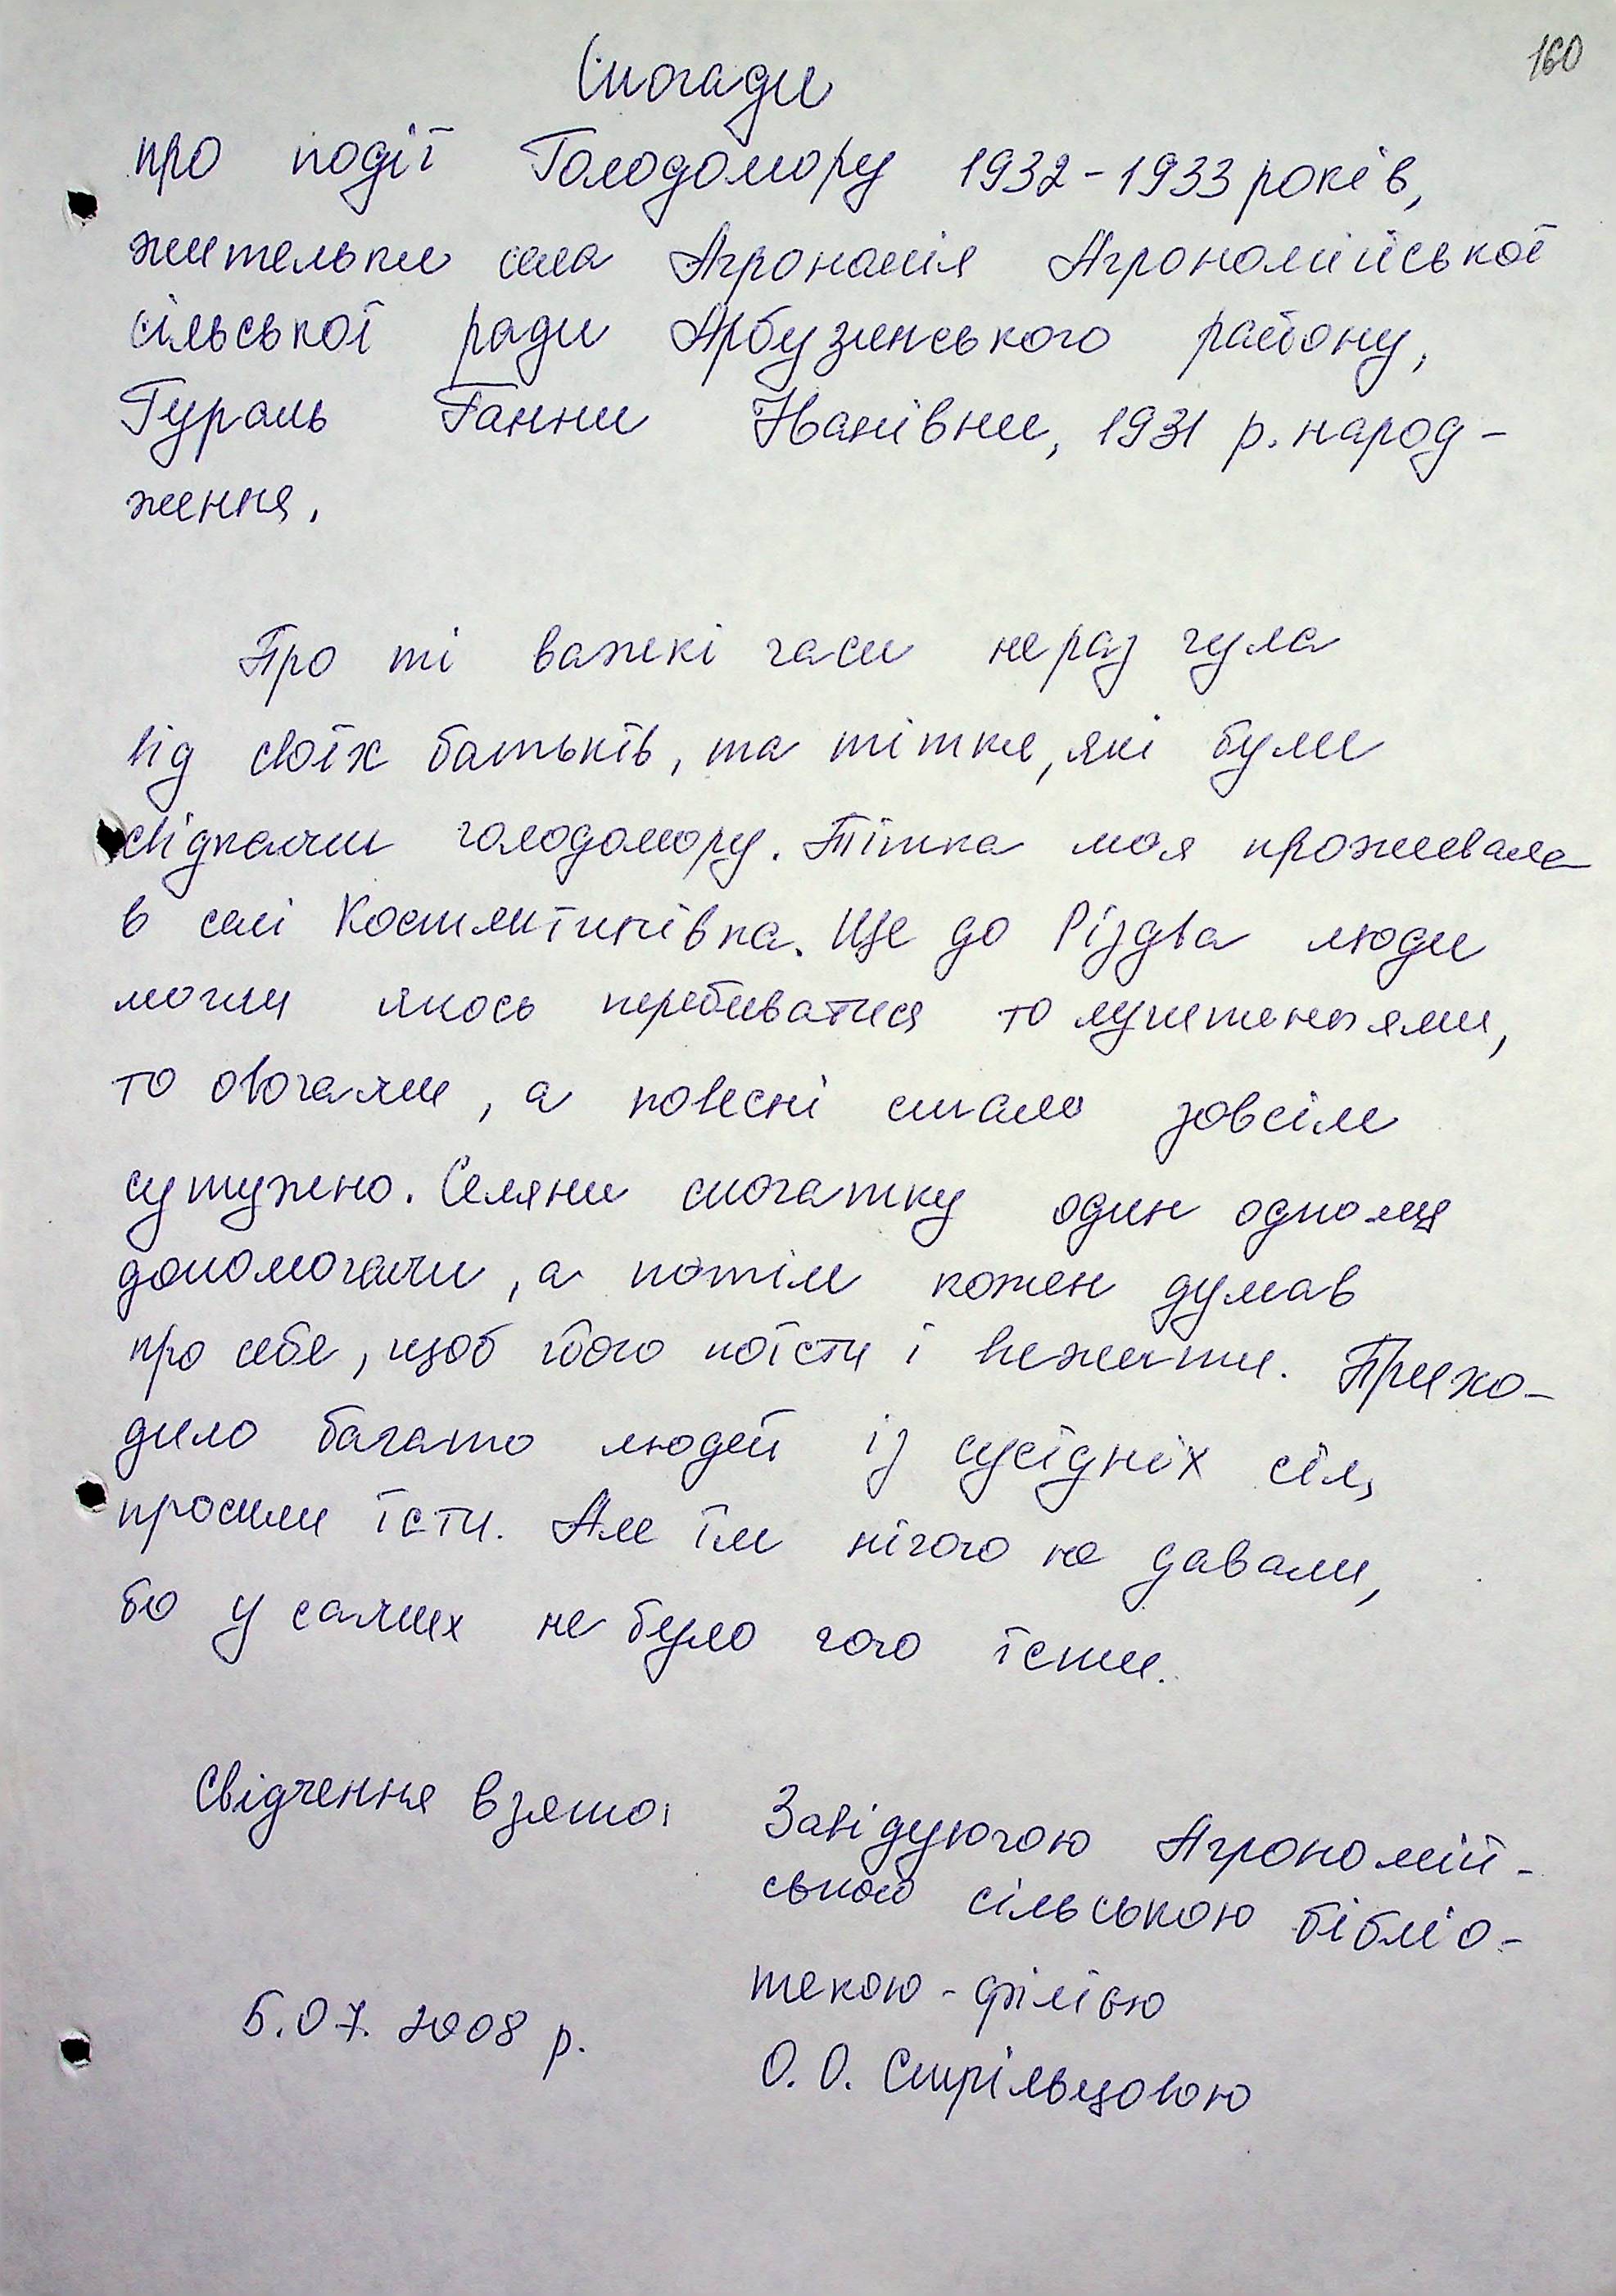 160
Спогади
про події Голодомору 1932-1933 років,
жительки села Агрономія Агрономійської
сільської ради Арбузинського району,
Гураль Ганни Іванівни, 1931 р. народ-
ження.
Про ті важкі часи не раз чула
від своїх батьків, та тітки, які були
свідками голодомору. Тітка моя проживала
в селі Костянтинівка. Ще до Різдва люди
могли якось перебиватися то лушпаннями,
то овочами, а повесні стало зовсім
сутужно. Селяни спочатку один одному
допомогали, а потім кожен думав
про себе, щоб його поїсти і вижити. Прихо-
дило багато людей із сусідніх сіл,
просили їсти. Але їм нічого не давали,
бо у самих не було чого їсти.
Свідчення взято:
Завідуючою Агрономій-
ською сільською бібліо-
текою-філією
5.07.2008 р.
О.О. Стрільцовою